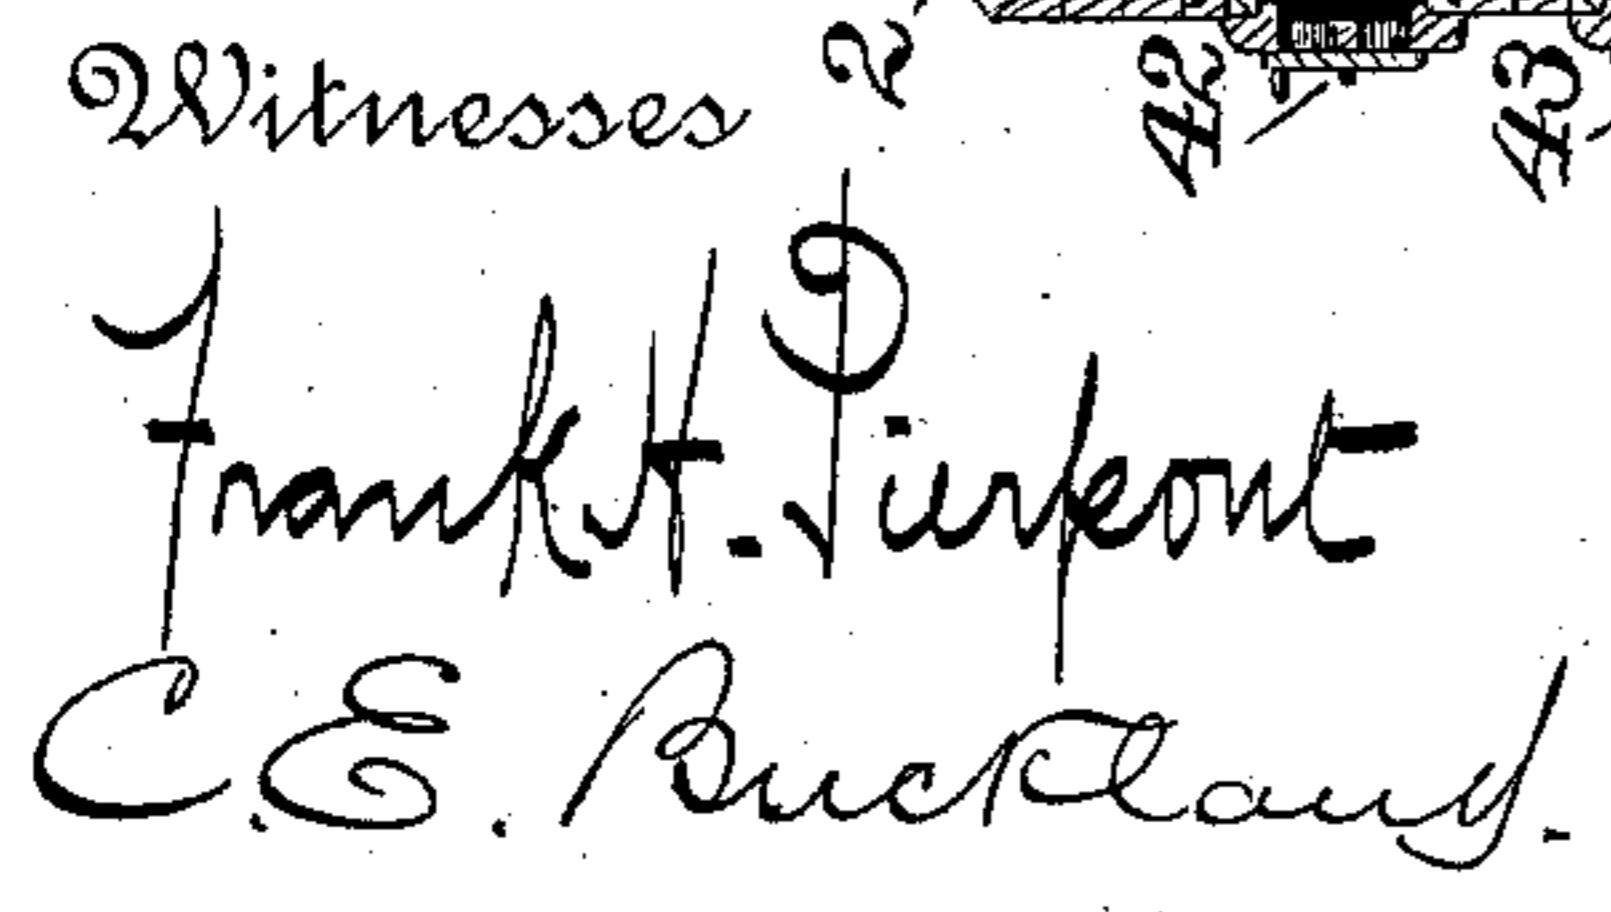 Witnesses
2
42
43
Frank H. Pierpont
C. E. Buckland.